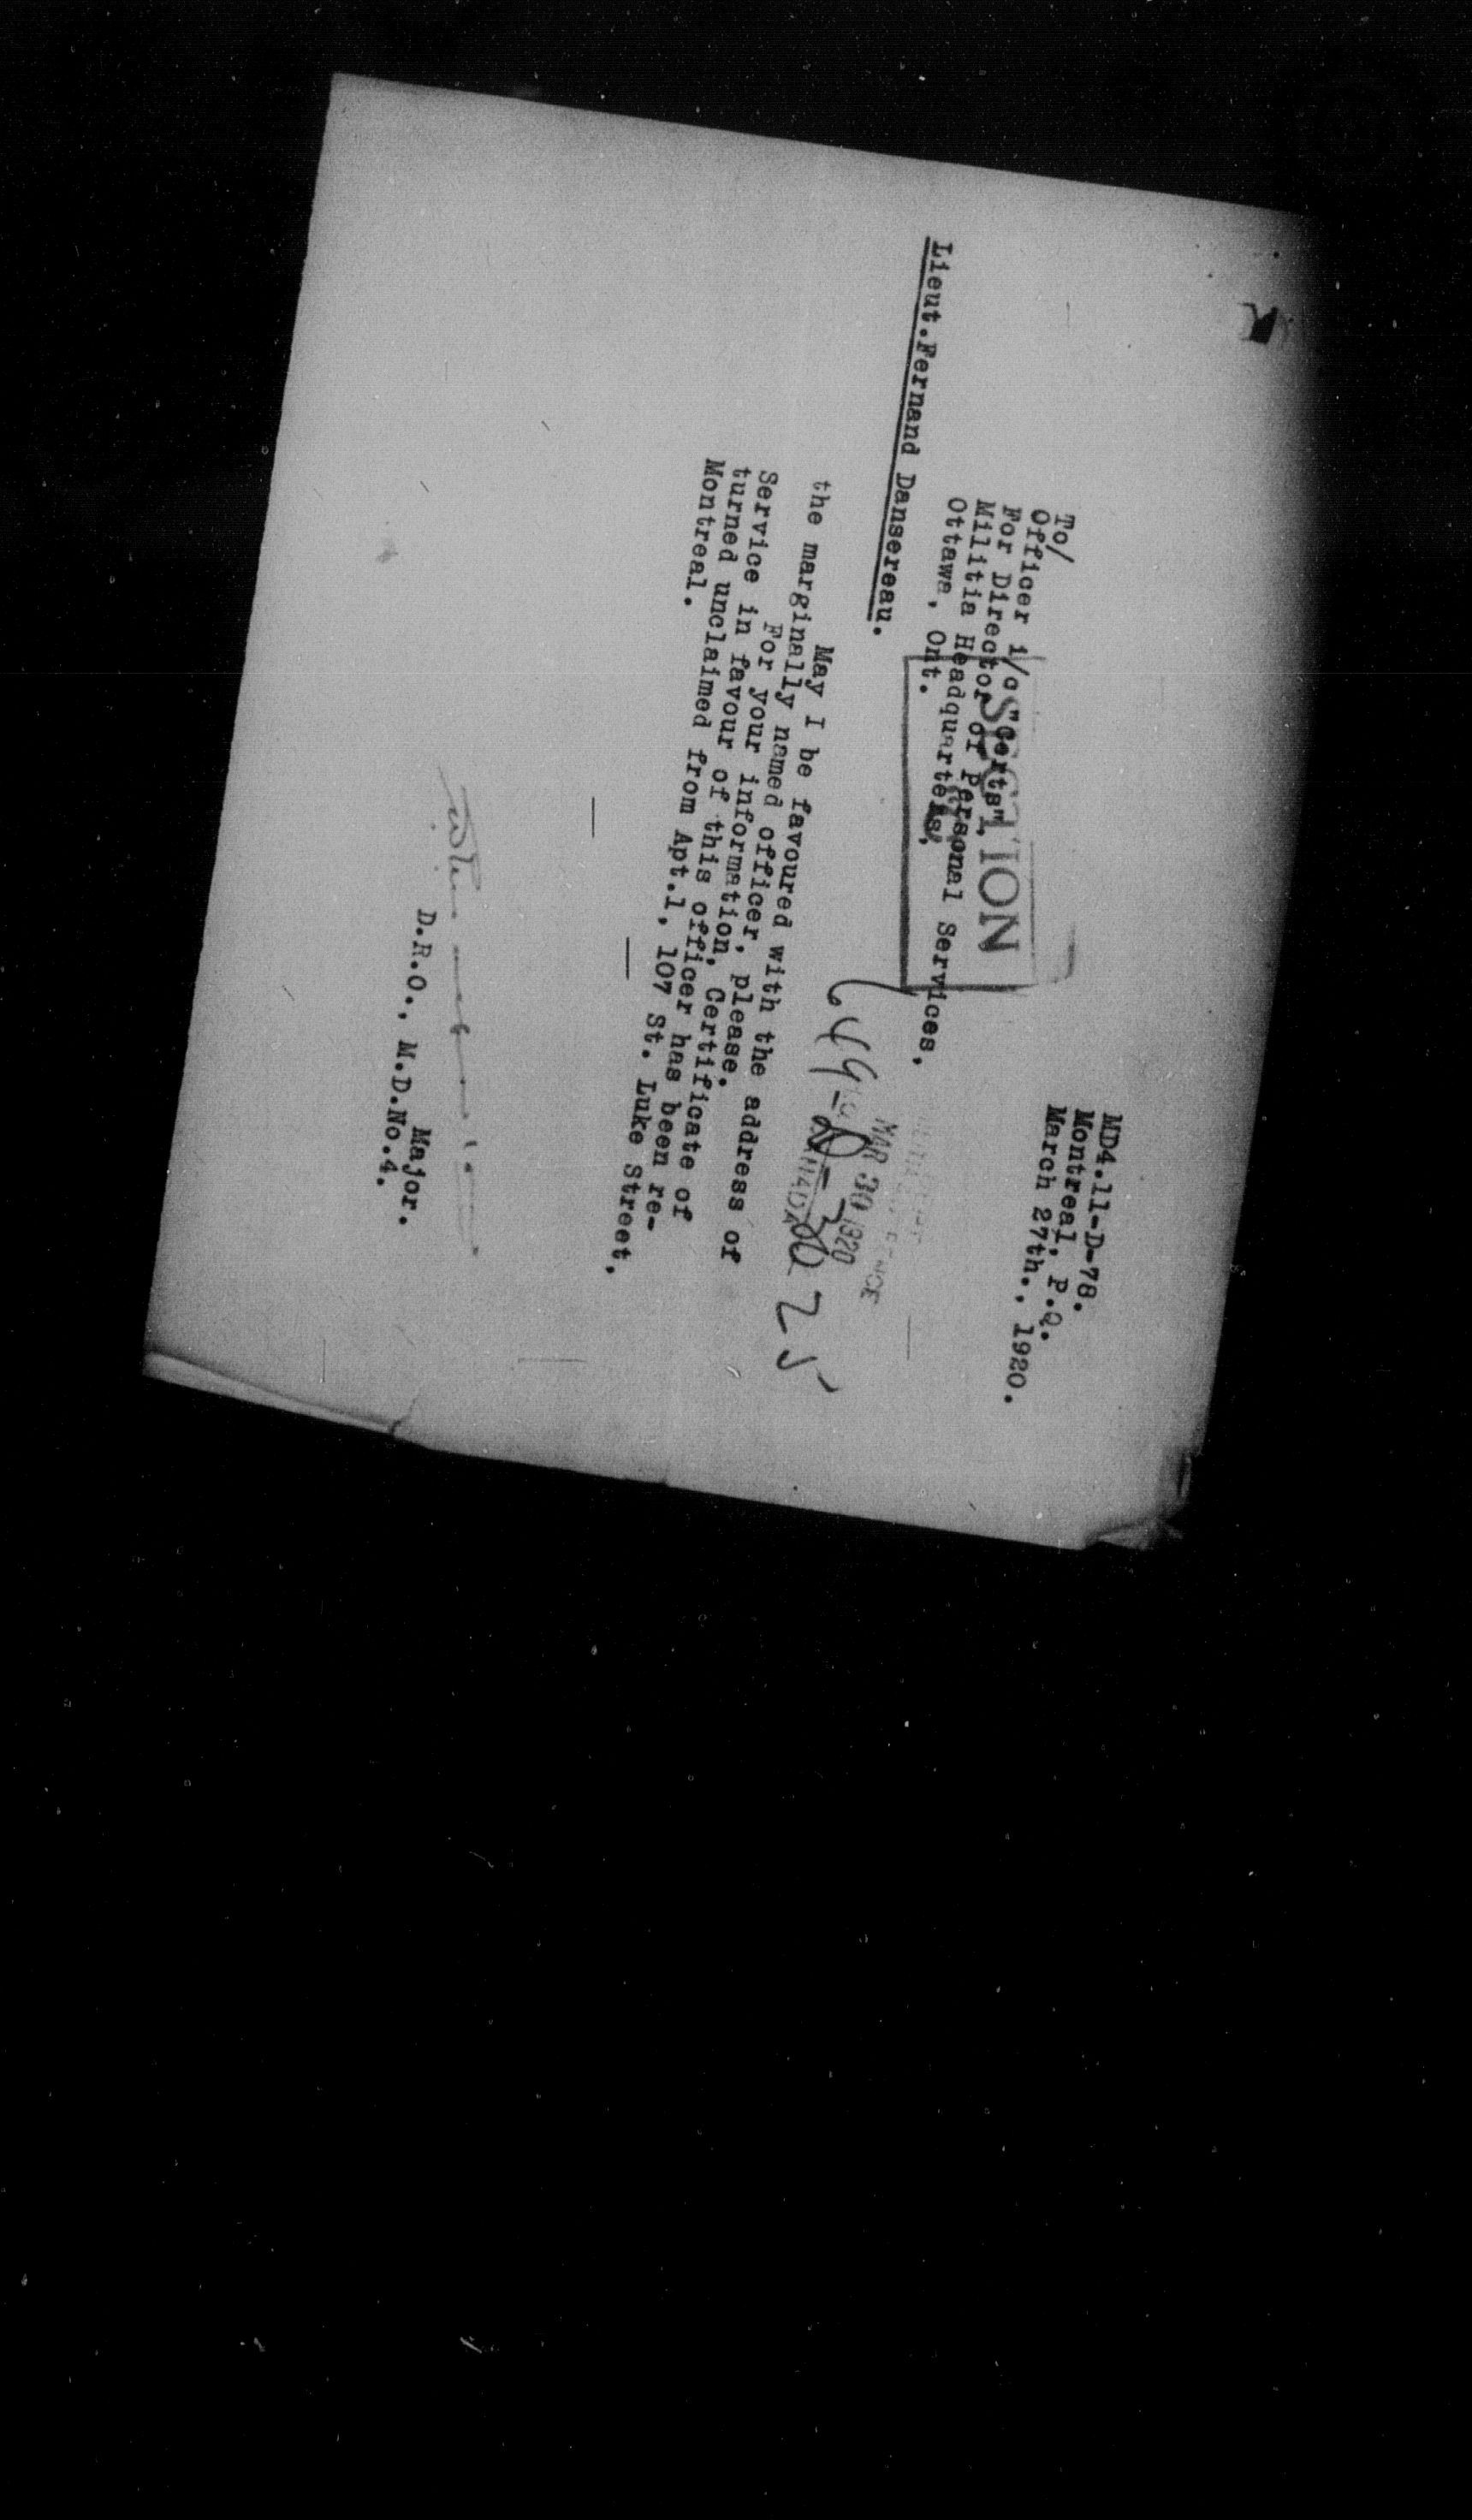 MD4.11-D-78.
Montreal, P.Q.
March 27th., 1920.
To/
Officer i/c "Certs",
For Director of Personal Services,
Militia Headquarters,
Ottawa, Ont.
SECTION
MAR 30 1920
CANADA
649-D-
25
Lieut.Fernand Dansereau.
May I be favoured with the address of
the marginally named officer, please.
For your information, Certificate of
Service in favour of this officer has been re-
turned unclaimed from Apt.1, 107 St. Luke Street,
Montreal.
Major.
D.R.O., M.D.No.4.